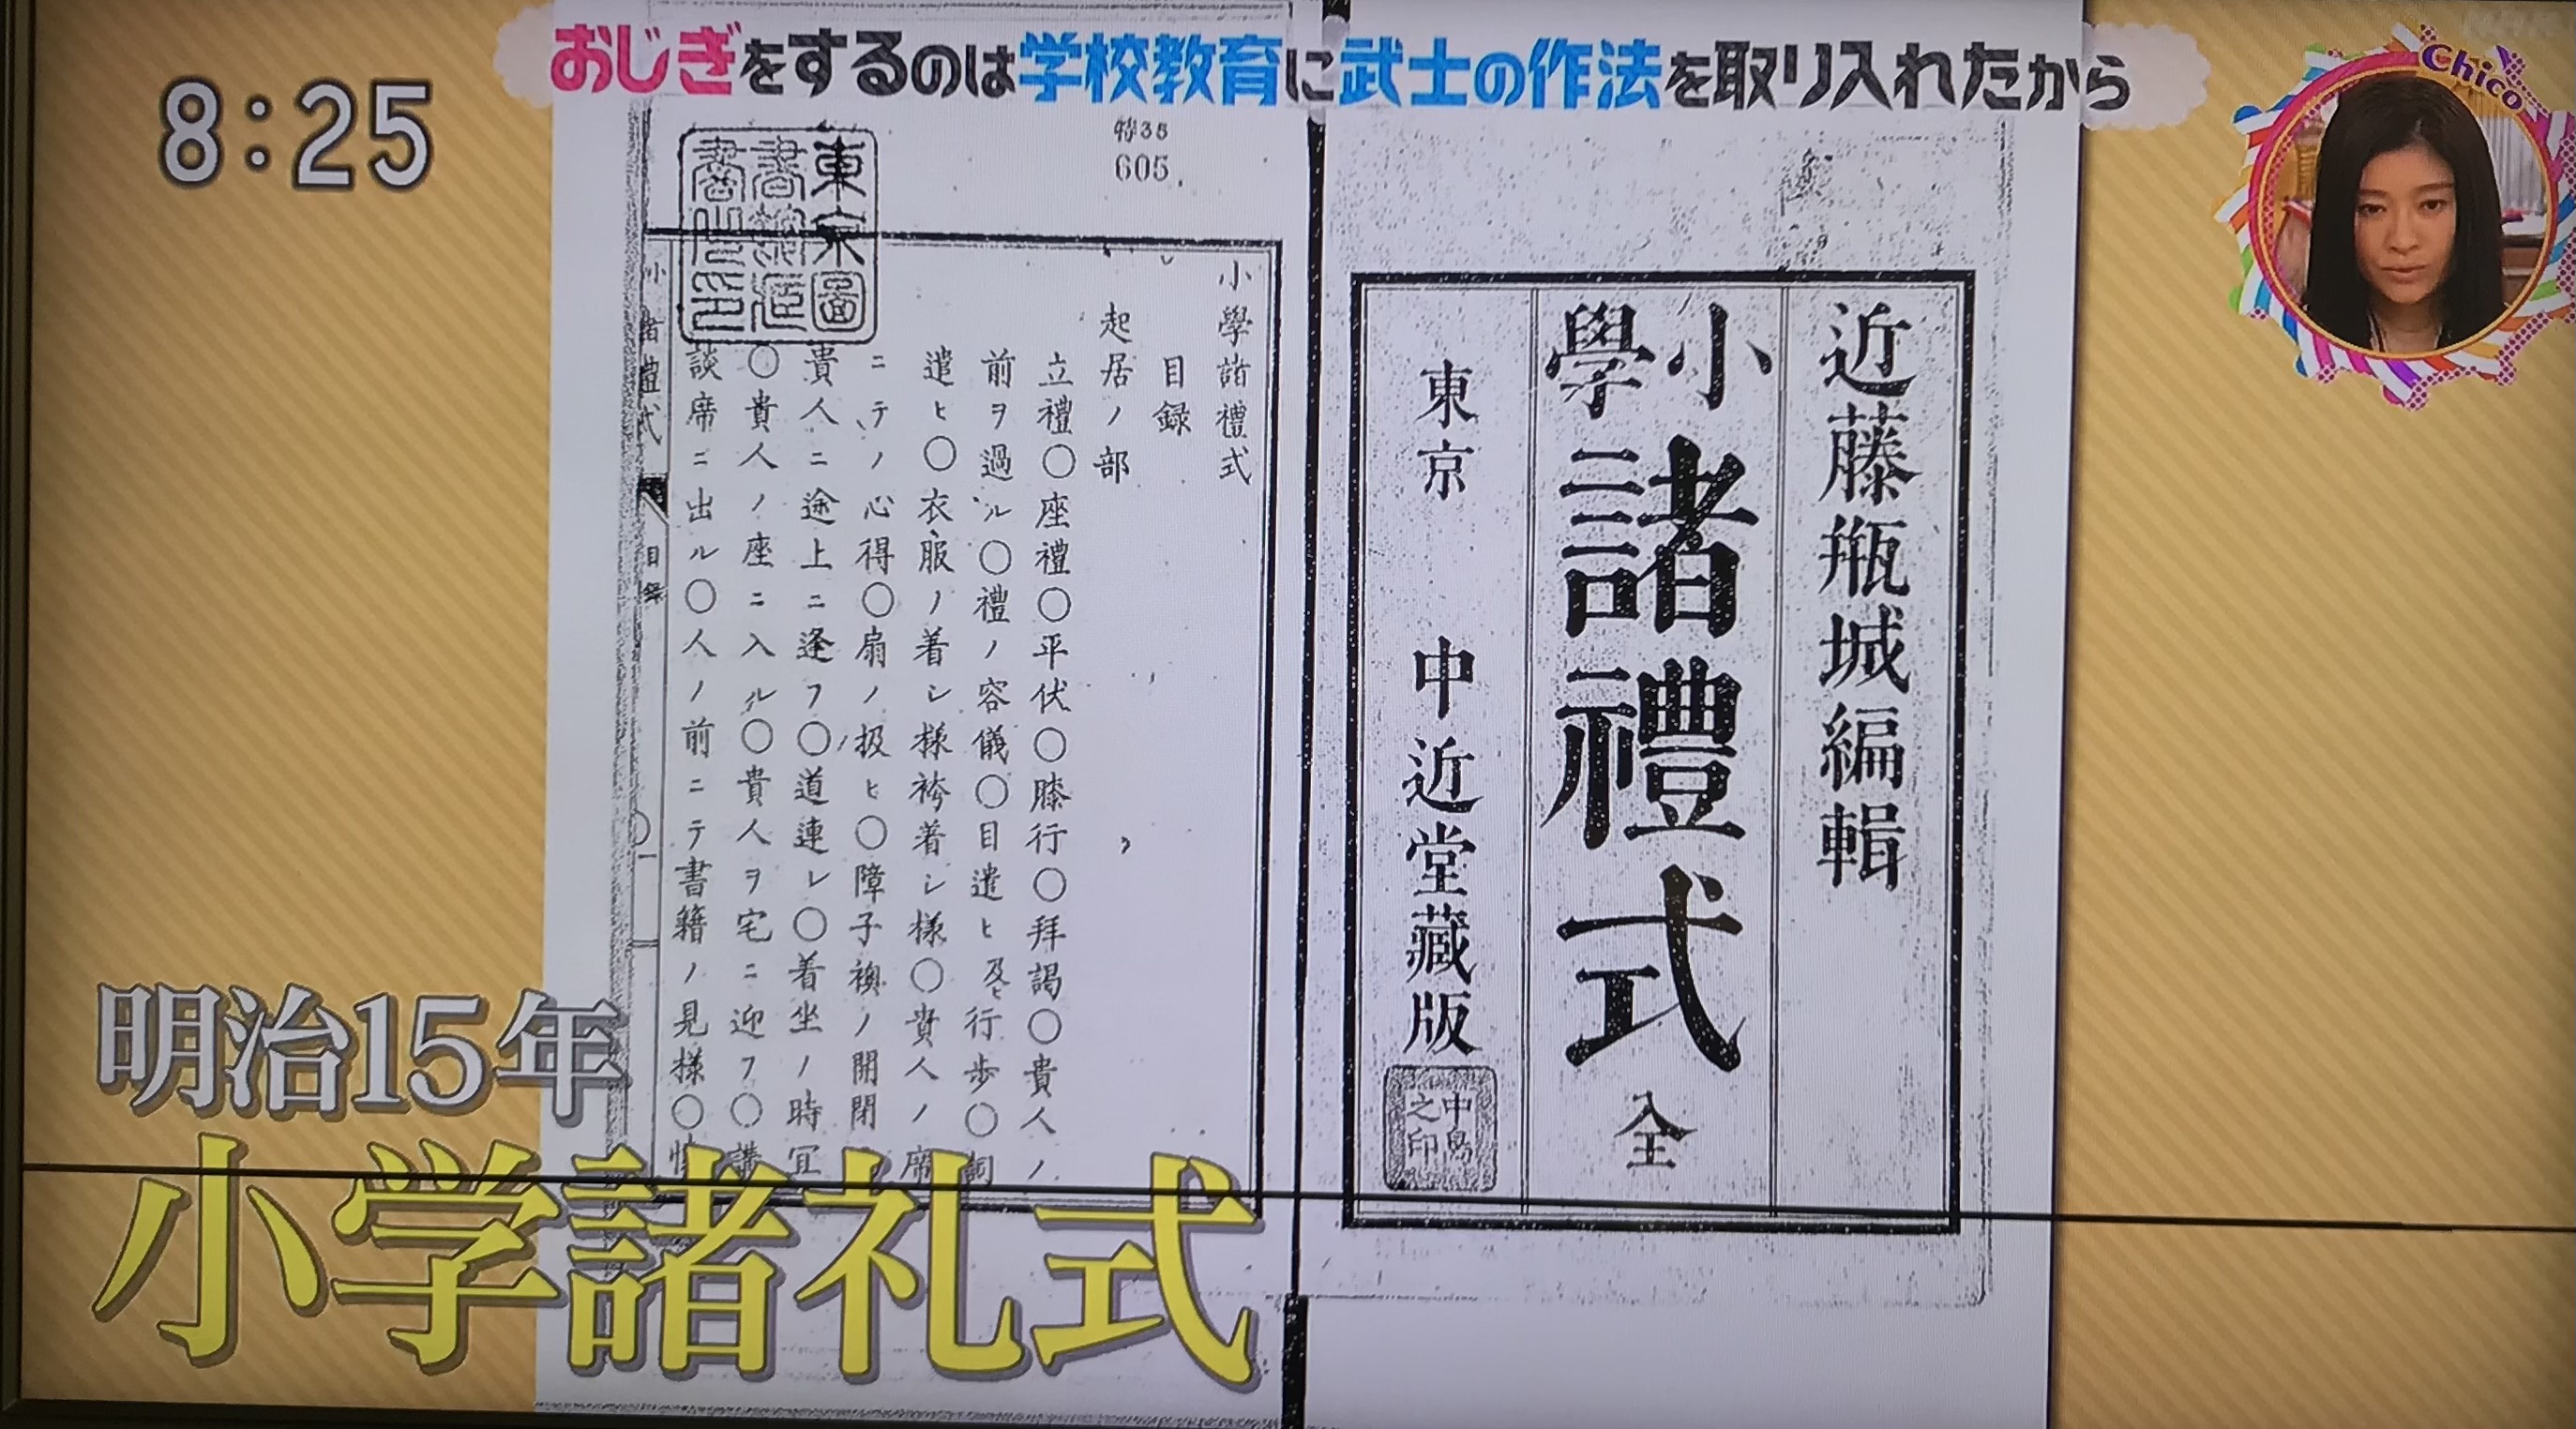 おじぎをするのは学校教育に武士の作法を取り入れたから
8:25
Chico
近藤瓶城編輯
小學諸禮式 全
東京 中近堂藏版
中島之印
特38
605
東京圖書館
小學諸禮式
目録
起居ノ部
立禮〇座禮〇平伏〇膝行〇拜謁〇貴人ノ
前ヲ過ル〇禮ノ容儀〇目遣ヒ及ヒ行歩〇詞
遣ヒ〇衣服ノ着シ様袴着シ様〇貴人ノ席
ニテノ心得〇扇ノ扱ヒ〇障子襖ノ開閉
貴人ニ途上ニ逢フ〇道連レ〇着坐ノ時宜
〇貴人ノ座ニ入ル〇貴人ヲ宅ニ迎フ〇講
談席ニ出ル〇人ノ前ニテ書籍ノ見様〇
目録
明治15年
小学諸礼式